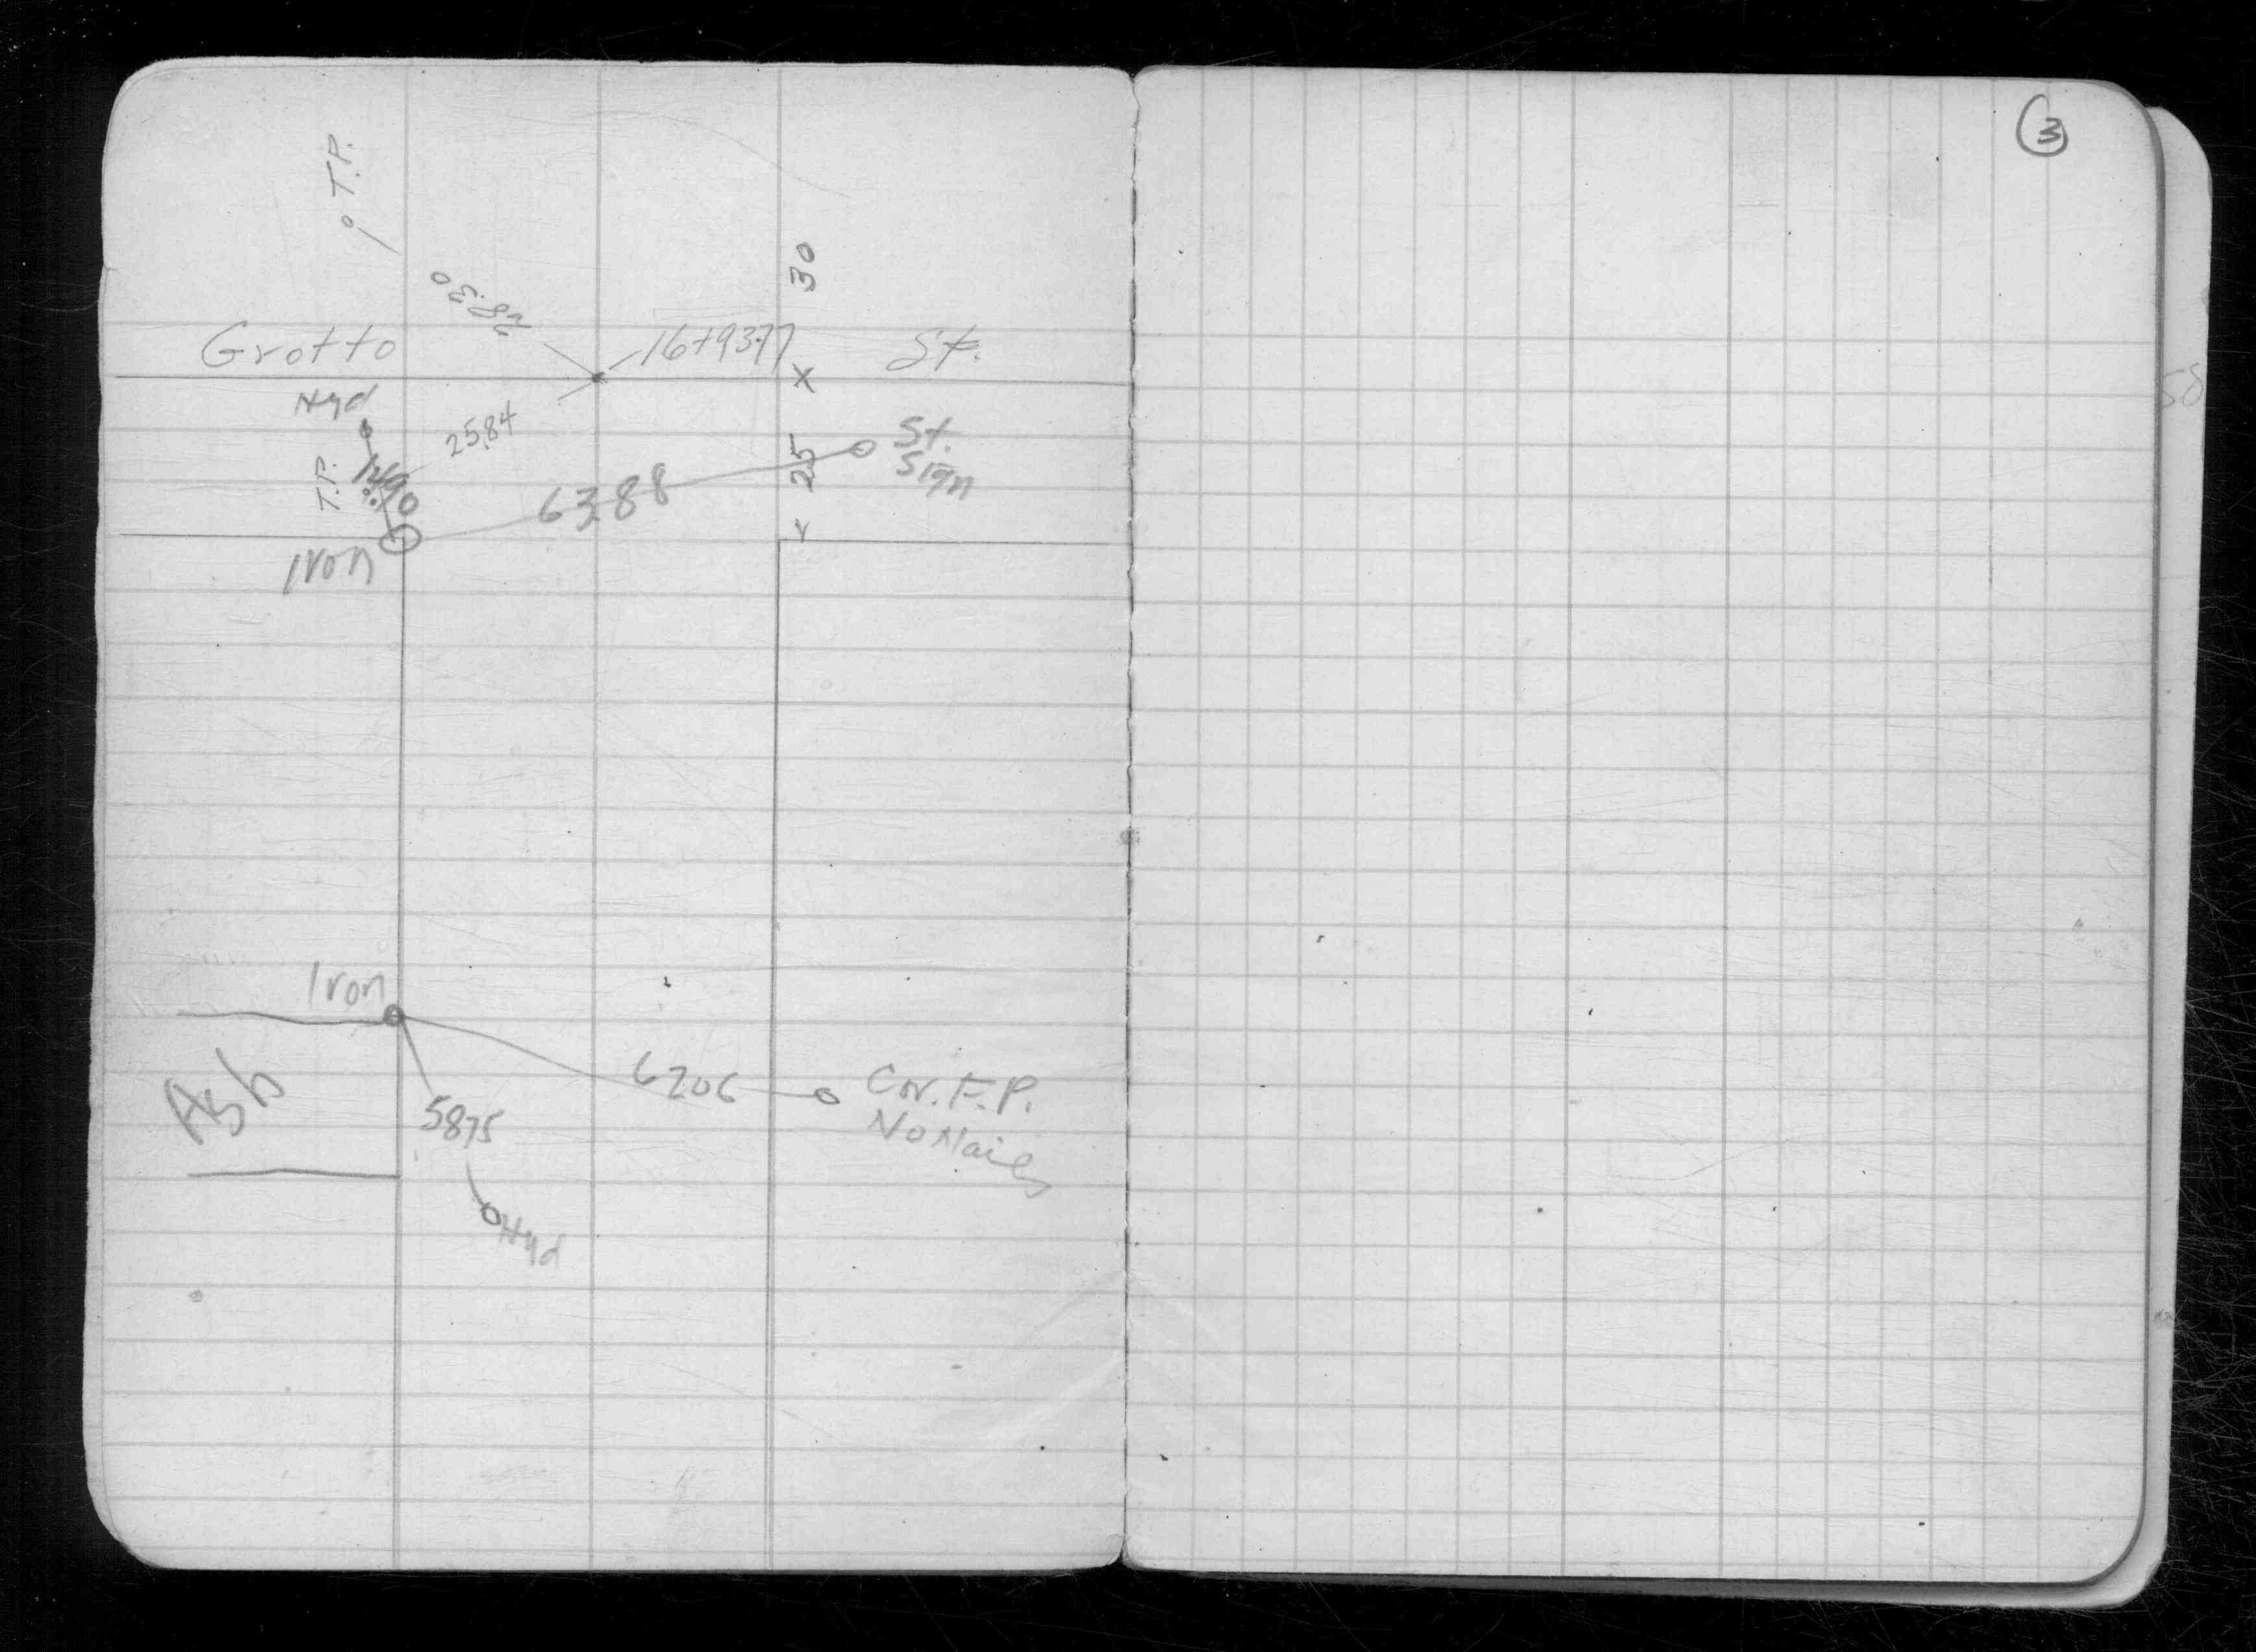 3
T.P.
30
28.30
Grotto
16+93.77
St.
Hyd
25.84
St.
Sign
25
T.P.
63.88
Iron
Iron
Ash
6206
Cor. F.P.
No Nail
5875
Hyd